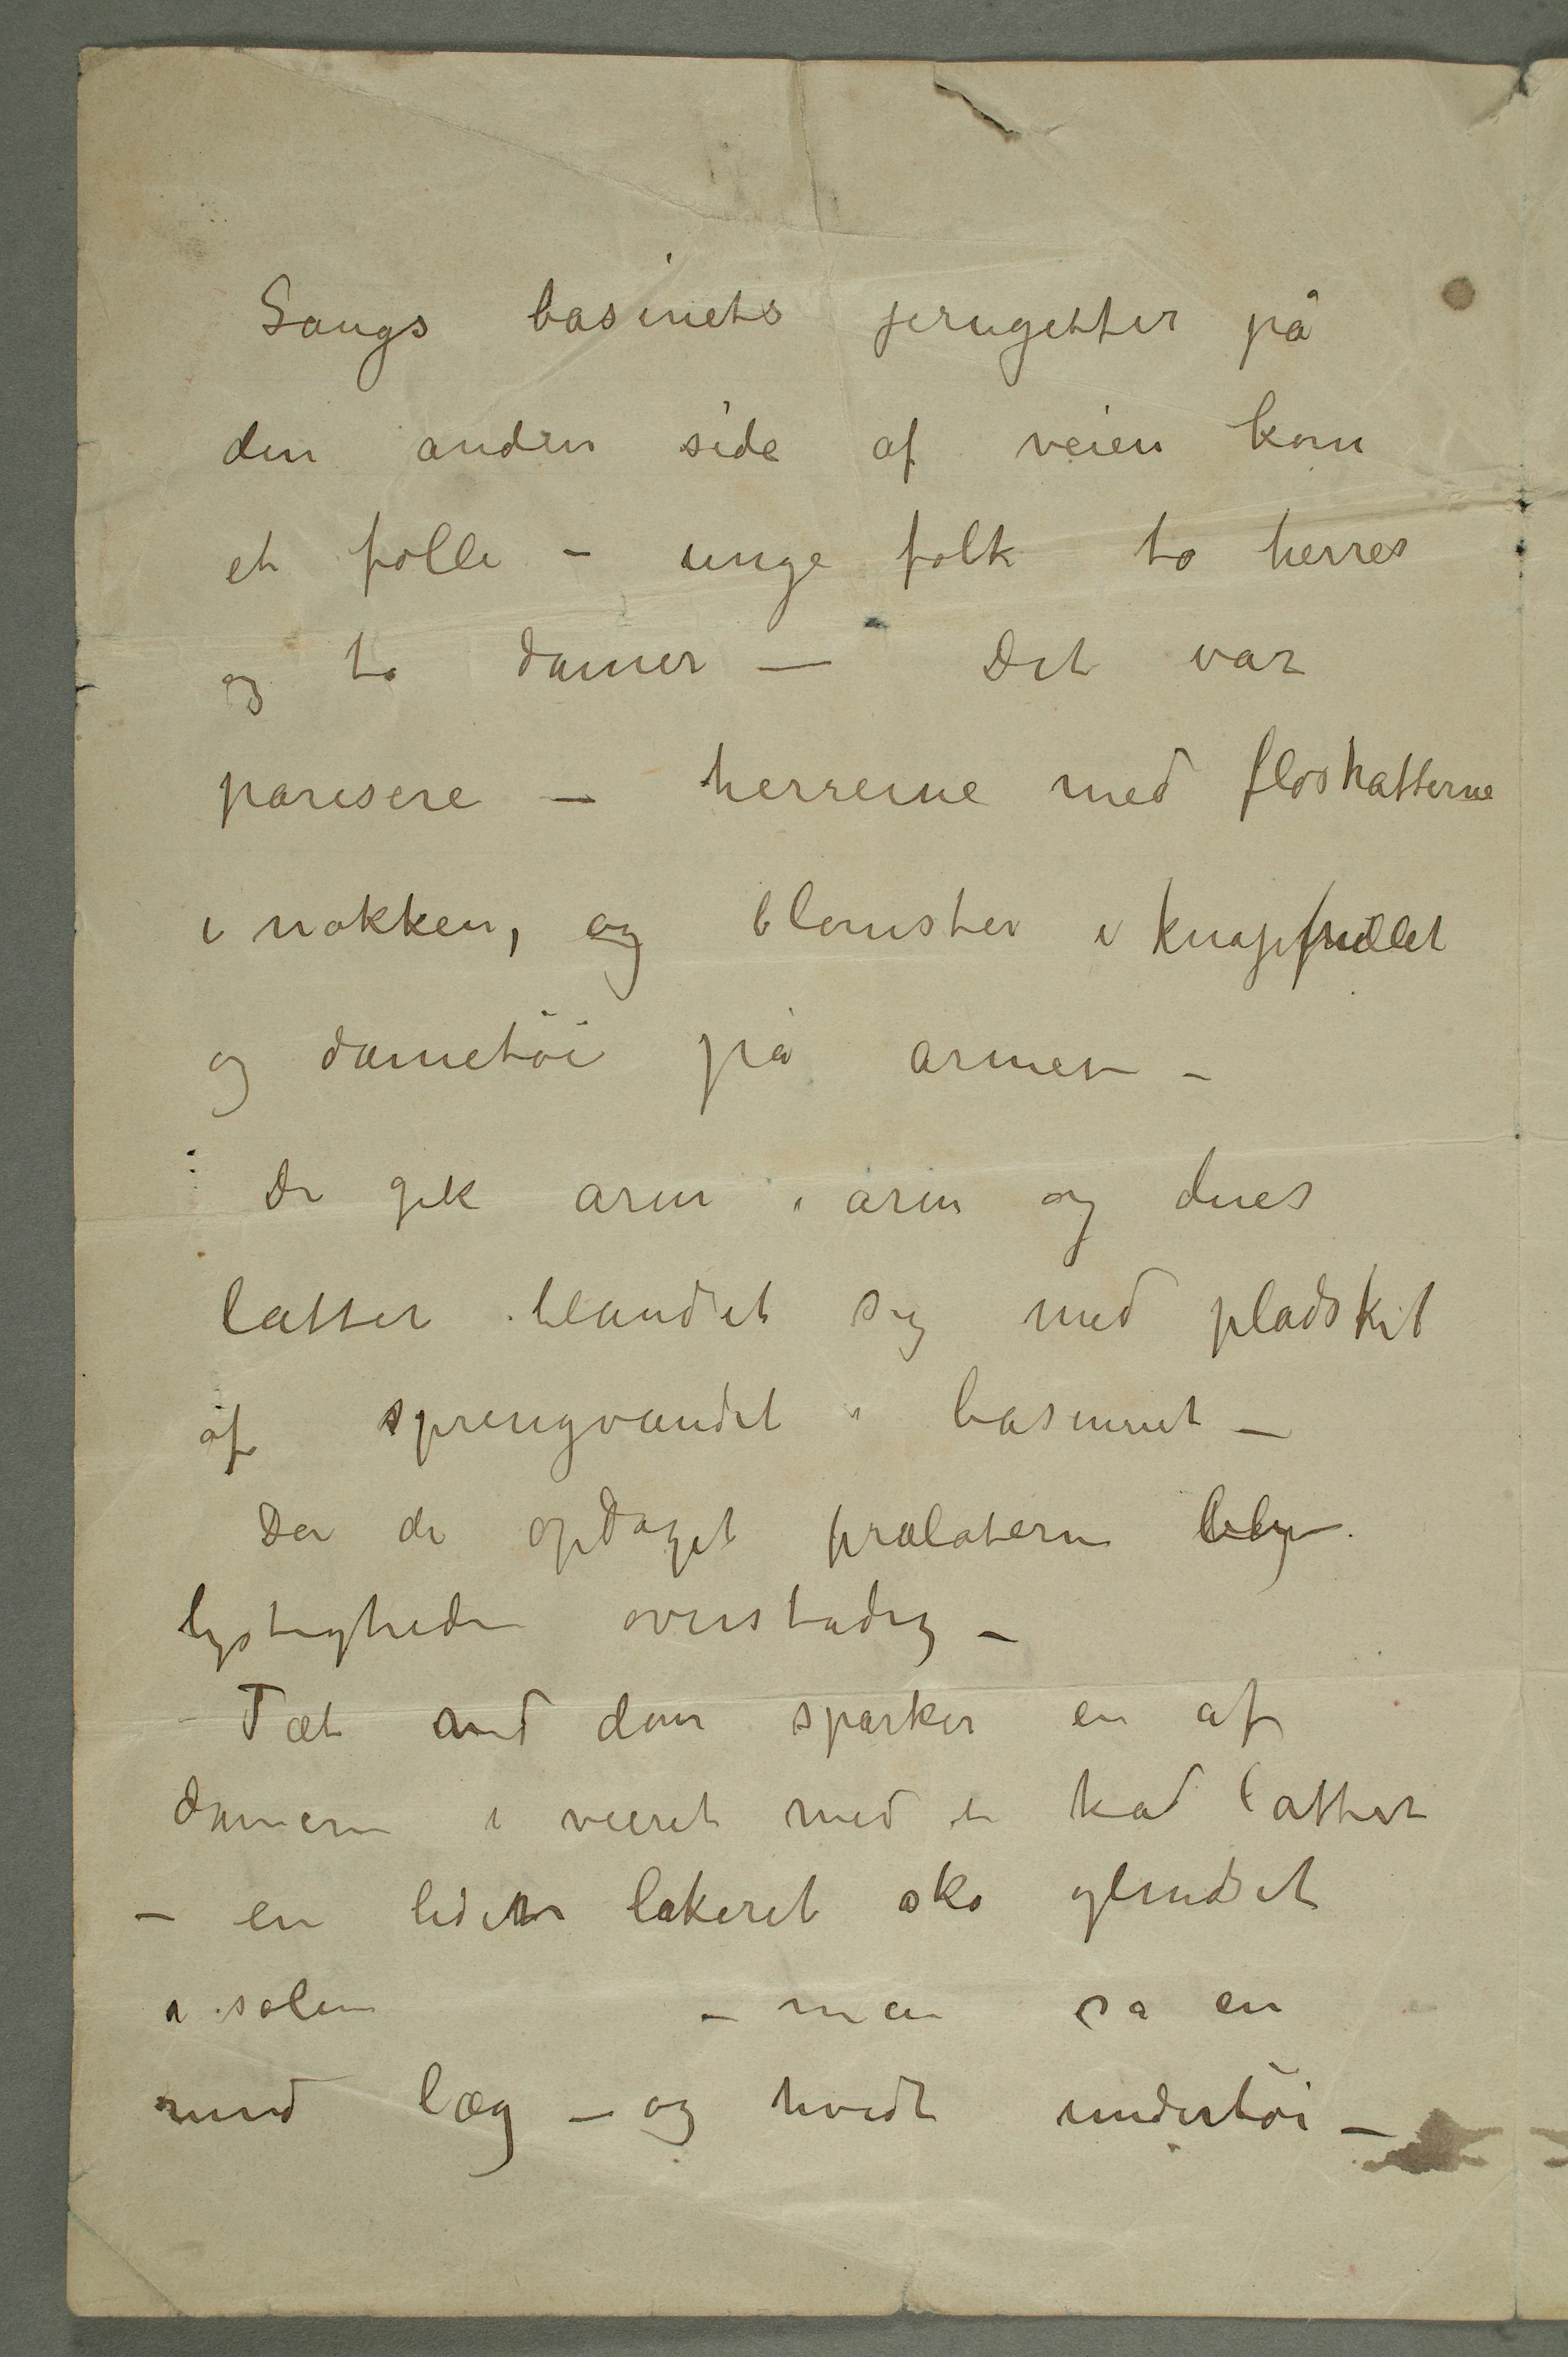 Langs basinets jerngitter på
den anden side af veien kom
et følle – unge folk to herrer
og to damer — Det var
parisere — herrerne med floshatterne
i nakken, og blomster i knaphullet
og dametöi på armen –
De gik arm i arm og deres
latter blandet sig med pladsket
af springvandet i basinnet –
Da de opdaget prælaterne blev
lystigheden overstadig –
Tæt ved dem sparker en af
damerne i veiret med en kåd latter
– en liden lakeret sko glindset
i solen – man så en
rund læg – og hvidt undertöi –